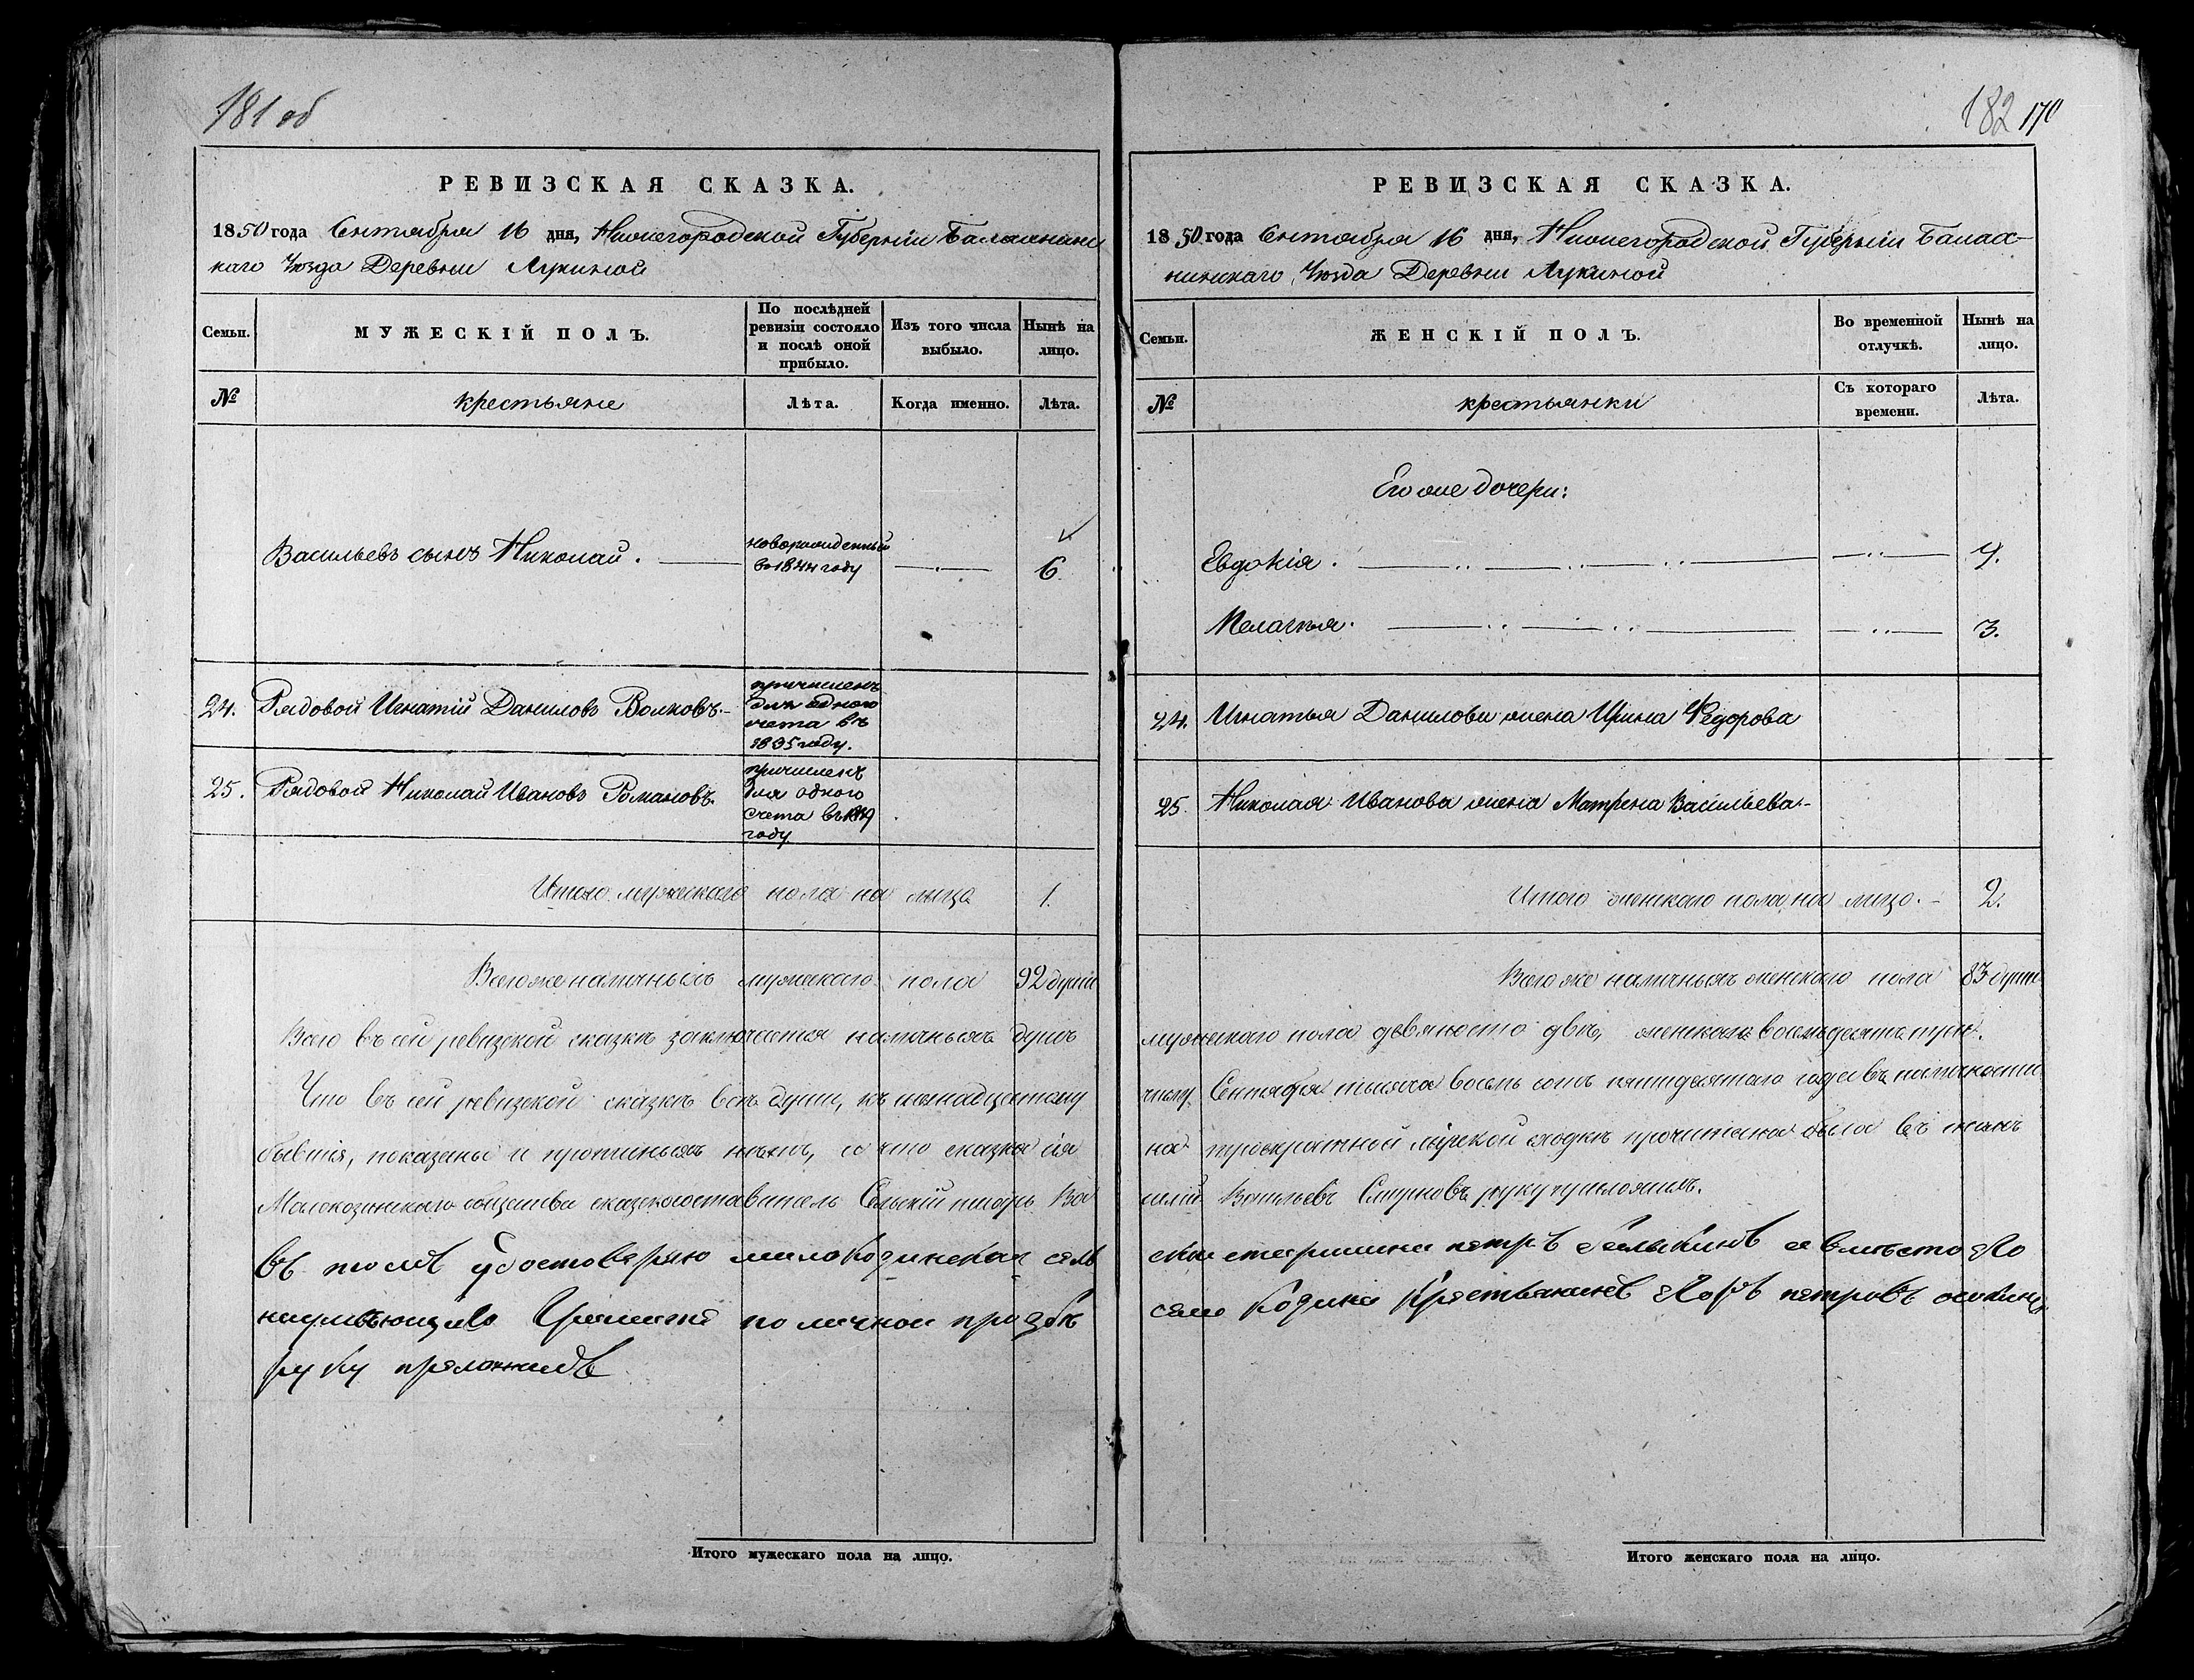 181 об
РЕВИЗСКАЯ СКАЗКА.
1850 года Сентября 16 дня, Нижегородской Губерніи Балахнинс
каго Уѣзда Деревни Лукиной
Семьи.
МУЖЕСКІЙ ПОЛЪ.
По послѣдней ревизіи состояло и послѣ оной прибыло.
Изъ того числа выбыло.
Нынѣ на лицо.
№
крестьяне
Лѣта.
Когда именно.
Лѣта.
Васильевъ сынъ Николай.
новорожденный
въ 1844 году
6
24. Рядовой Игнатій Даниловъ Волковъ.
причисленъ
для одного
счета въ
1835 году.
25. Рядовой Николай Ивановъ Романовъ.
причисленъ
для одного
счета въ
году
Итого мужескаго пола на лицо 1.
Всего же наличныхъ мужескаго пола 92 души
Всего въ сей ревизской сказкѣ заключается наличныхъ душъ
Что въ сей ревизской сказкѣ всѣ души, къ шестнадцатому
бывшія, показаны и прописныхъ нѣтъ, и что сказка сія
Малокозинскаго общества сказкосоставитель Сельскій писарь Ва
въ томъ удостоверяю малокозинскай селв
неумѣющаго Грамоте по личной прозбѣ
руку приложилъ
Итого мужескаго пола на лицо.
182 170
РЕВИЗСКАЯ СКАЗКА.
1850 года Сентября 16 дня, Нижегородской Губерніи Балах-
нинскаго Уѣзда Деревни Лукиной
Семьи.
ЖЕНСКІЙ ПОЛЪ.
Во временной отлучкѣ.
Нынѣ на лицо.
№
крестьянки
Съ котораго времени.
Лѣта.
Его же дочери:
Евдокія.
Пелагея. 3.
24. Игнатья Данилова жена Ирина Федорова
25. Николая Иванова жена Матрена Васильева.
Итого женскаго пола на лицо. 2.
Всего же наличныхъ женскаго пола 83 души
мужескаго пола девяносто двѣ, женскаго восемьдесятъ три.
числу Сентября тысяча восемь сотъ пятидесятаго года въ наличности
на троекратной мірской сходкѣ прочитана была въ томъ
силій Васильевъ Смирновъ руку приложилъ.
ской старшина петръ и вместо его
села Козина Крестьянинъ петровъ
Итого женскаго пола на лицо.